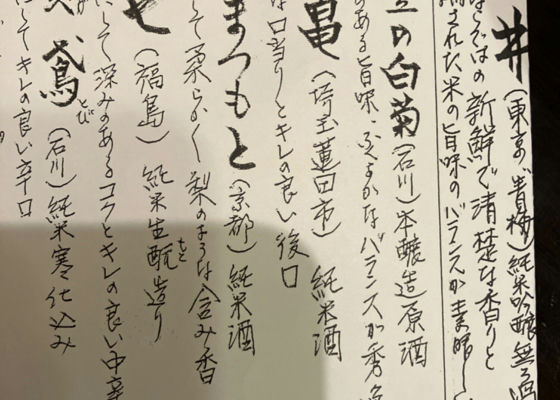 井（東京の青梅）純米吟醸無ろ過
ならではの新鮮で清楚な香りと
された米の旨味のバランスが素晴らし
の白菊（石川）本醸造原酒
のある旨味、ふくよかなバランスが秀
亀（埼玉蓮田市）純米酒
な口当りとキレの良い後口
まつもと（京都）純米酒
して柔らかく梨のような含み香
（福島）純米生酛造り
もと
にして深みのあるコクとキレの良い中辛
鳶（石川）純米寒仕込み
とび
にしてキレの良い辛口